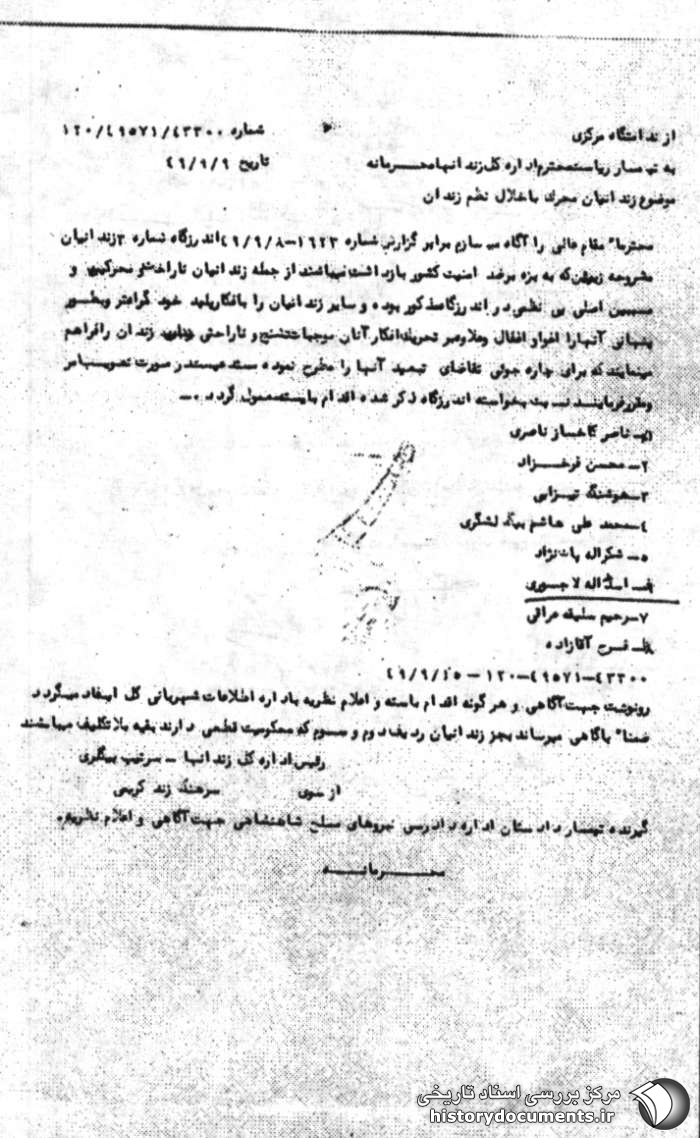 از ندامتگاه مرکزی شماره ۱۲۰/۴۹۵۷۱/۴۳۳۰۰
به تیمسار ریاست محترم اداره کل زندانها محرمانه تاریخ ۴۹/۹/۹
موضوع زندانیان محرک باخلال نظم زندان
محترما" مقام عالی را آگاه می سازم برابر گزارش شماره ۱۶۲۳-۴۹/۹/۸ اندرزگاه شماره ۳ زندانیان
مشروحه زیرین که به بزه برضد امنیت کشور بازداشت میباشند از جمله زندانیان ناراحت و محرکین و
مسببین اصلی بی نظمی در اندرزگاه مذکور بوده و سایر زندانیان را با افکار پلید خود گمراه و بطور
پنهانی آنها را اغوا و اغفال وعلاوه بر تحریک افکار آنان موجبات تشنج و ناراحتی زندان را فراهم
مینمایند که برای چاره جوئی تقاضای تبعید آنها را مطرح نموده مستدعیست در صورت تصویب امر
ومقرر فرمایند نسبت بخواسته اندرزگاه ذکر شده اقدام بایسته معمول گردد ۰-
۱- ناصر کاخساز ناصری
۲- محسن فرخزاد
۳- هوشنگ تیزابی
۴- محمد علی هاشم بیک لشگری
۵- شکراله پاک نژاد
۶- اسداله لاجوردی
۷- رحیم سلیقه عراقی
۸- فرج آقازاده
۴۳۳۰۰-۴۹۵۷۱-۱۲۰-۴۹/۹/۱۵
رونوشت جهت آگاهی و هرگونه اقدام بایسته و اعلام نظریه باداره اطلاعات شهربانی کل ایفاد میگردد
ضمنا" باآگاهی میرساند بجز زندانیان ردیف دوم و سوم که محکومیت قطعی دارند بقیه بلاتکلیف میباشند
رئیس اداره کل زندانها - سرتیپ بیگلری
از سوی سرهنگ زند کریمی
گیرنده تیمسار دادستان اداره دادرسی نیروهای مسلح شاهنشاهی جهت آگاهی و اعلام نظریه.
محرمانه
مرکز بررسی اسناد تاریخی
historydocuments.ir